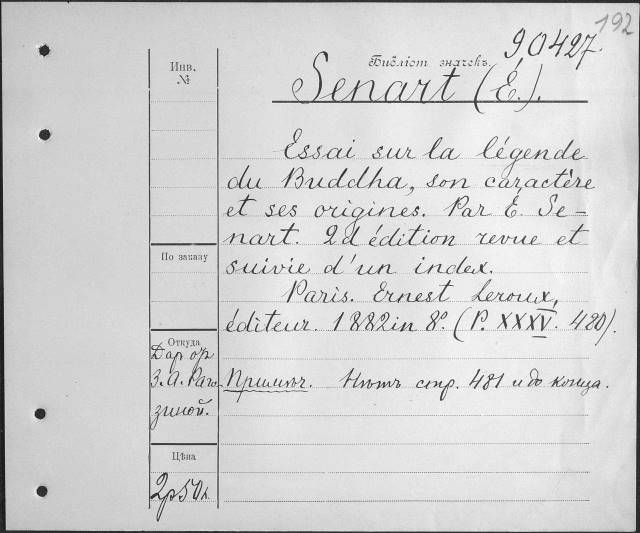 192
90427.
Библіот. значекъ.
Инв.
№
Senart (É.).
Essai sur la légende
du Buddha, son caractère
et ses origines. Par É. Se-
nart. 2d édition revue et
suivie d'un index.
Paris. Ernest Leroux,
éditeur. 1882 in 8º. (P. XXXV. 480).
По заказу
Откуда
Дар
З. А. Раго-
зиной.
Примѣч. Нѣтъ стр. 481 и до конца.
Цѣна
2р50к